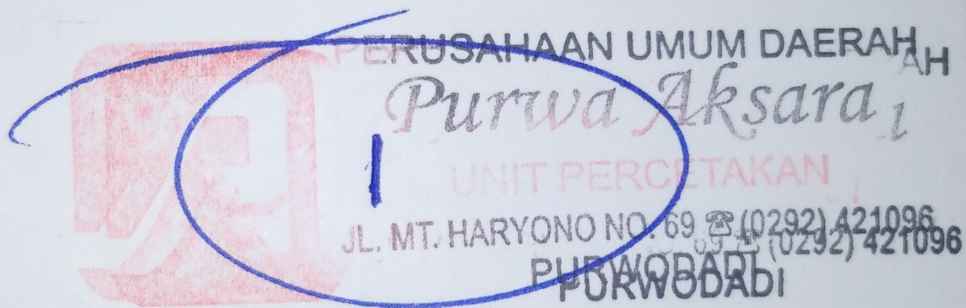 PERUSAHAAN UMUM DAERAH
Purwa Aksara
UNIT PERCETAKAN
JL. MT. HARYONO NO. 69 ☎ (0292) 421096
PURWODADI